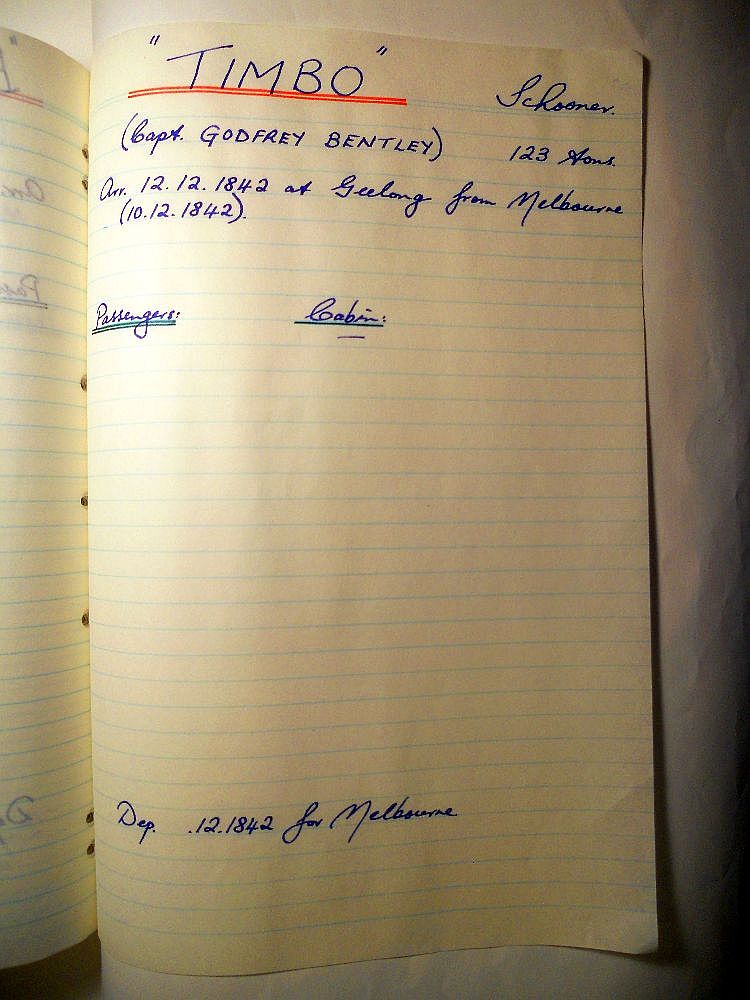 "TIMBO"
Schooner.
(Capt. GODFREY BENTLEY)
123 tons.
Arr. 12.12.1842 at Geelong from Melbourne
(10.12.1842).
Passengers: Cabin:
Dep. .12.1842 for Melbourne